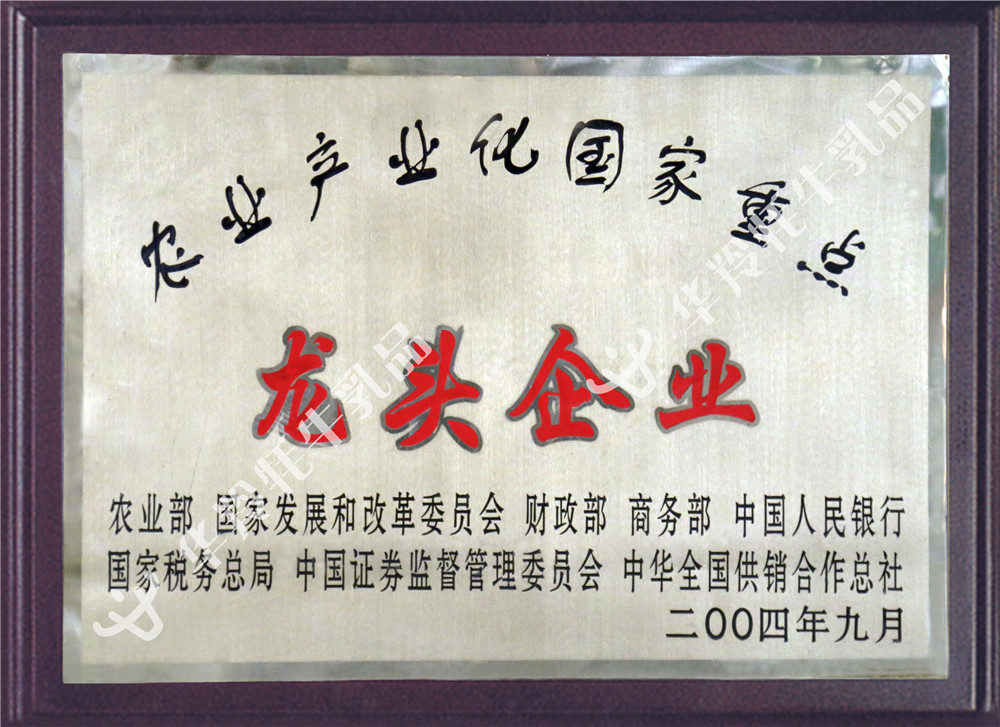 农业产业化国家重点
龙头企业
农业部 国家发展和改革委员会 财政部 商务部 中国人民银行
国家税务总局 中国证券监督管理委员会 中华全国供销合作总社
二〇〇四年九月
华羚牦牛乳品
华羚牦牛乳品
华羚牦牛乳品